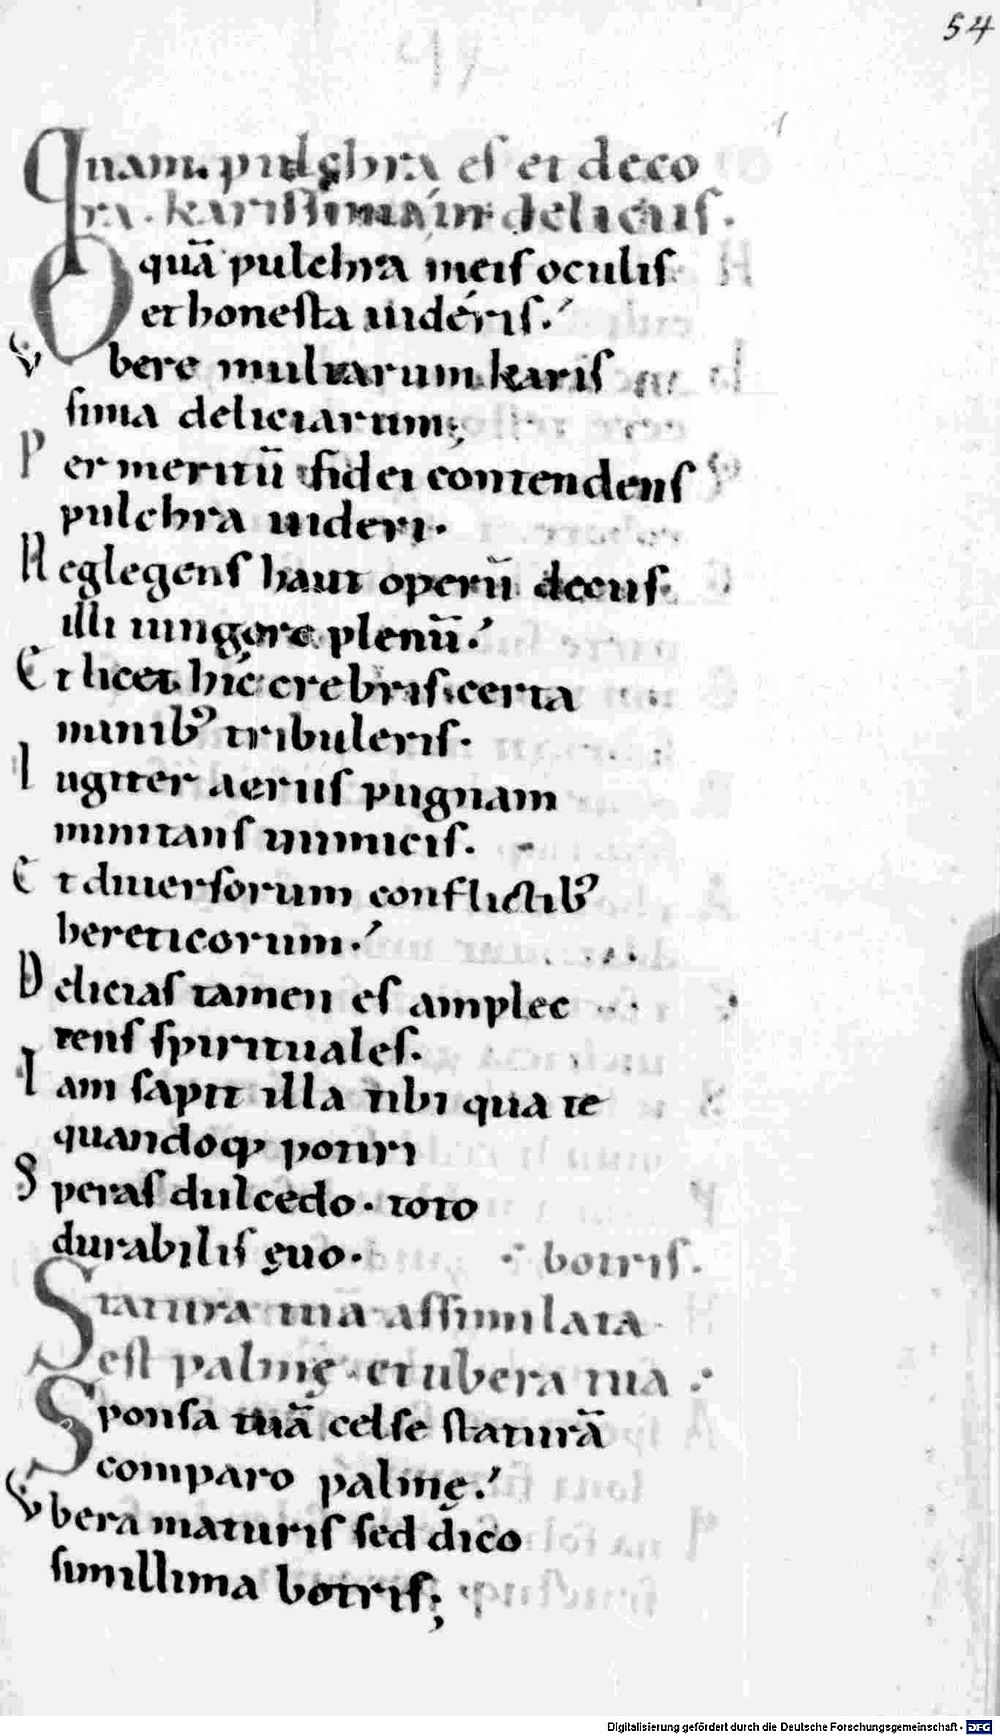 54
Quam pulchra es et deco
ra. karissima in deliciis.
O quā pulchra meis oculis
et honesta uidéris.
Vbere multarum karis
sima deliciarum;
Per meritū fidei contendens
pulchra uideri.
Neglegens haut operū decus
illi iungere plenū.
Et licet hic crebris certa
minib; tribuleris.
Iugiter aeriis pugnam
minitans inimicis.
Et diuersorum conflictib;
hereticorum.
Delicias tamen es amplec
tens spirituales.
Iam sapit illa tibi qua te
quandoq; potiri
Speras dulcedo. toto
durabilis ęuo.
botris.
Statura tua assimilata
est palmę. et ubera tua
Sponsa tuā celse staturā
comparo palmę.
Vbera maturis sed dico
simillima botris;
Digitalisierung gefördert durch die Deutsche Forschungsgemeinschaft - DFG